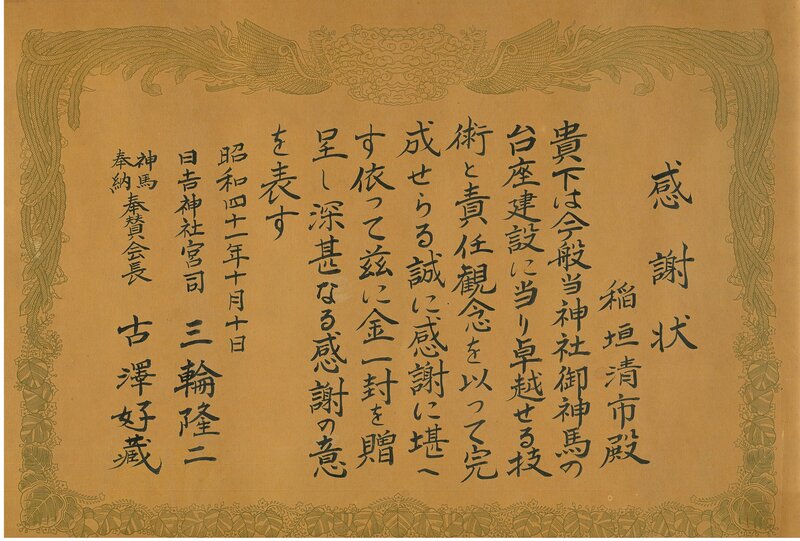 感謝状
稲垣清市殿
貴下は今般当神社御神馬の
台座建設に当り卓越せる技
術と責任観念を以って完
成せらる誠に感謝に堪へ
す依って茲に金一封を贈
呈し深甚なる感謝の意
を表す
昭和四十一年十月十日
日吉神社宮司 三輪隆二
神馬奉納奉賛会長 古澤好藏